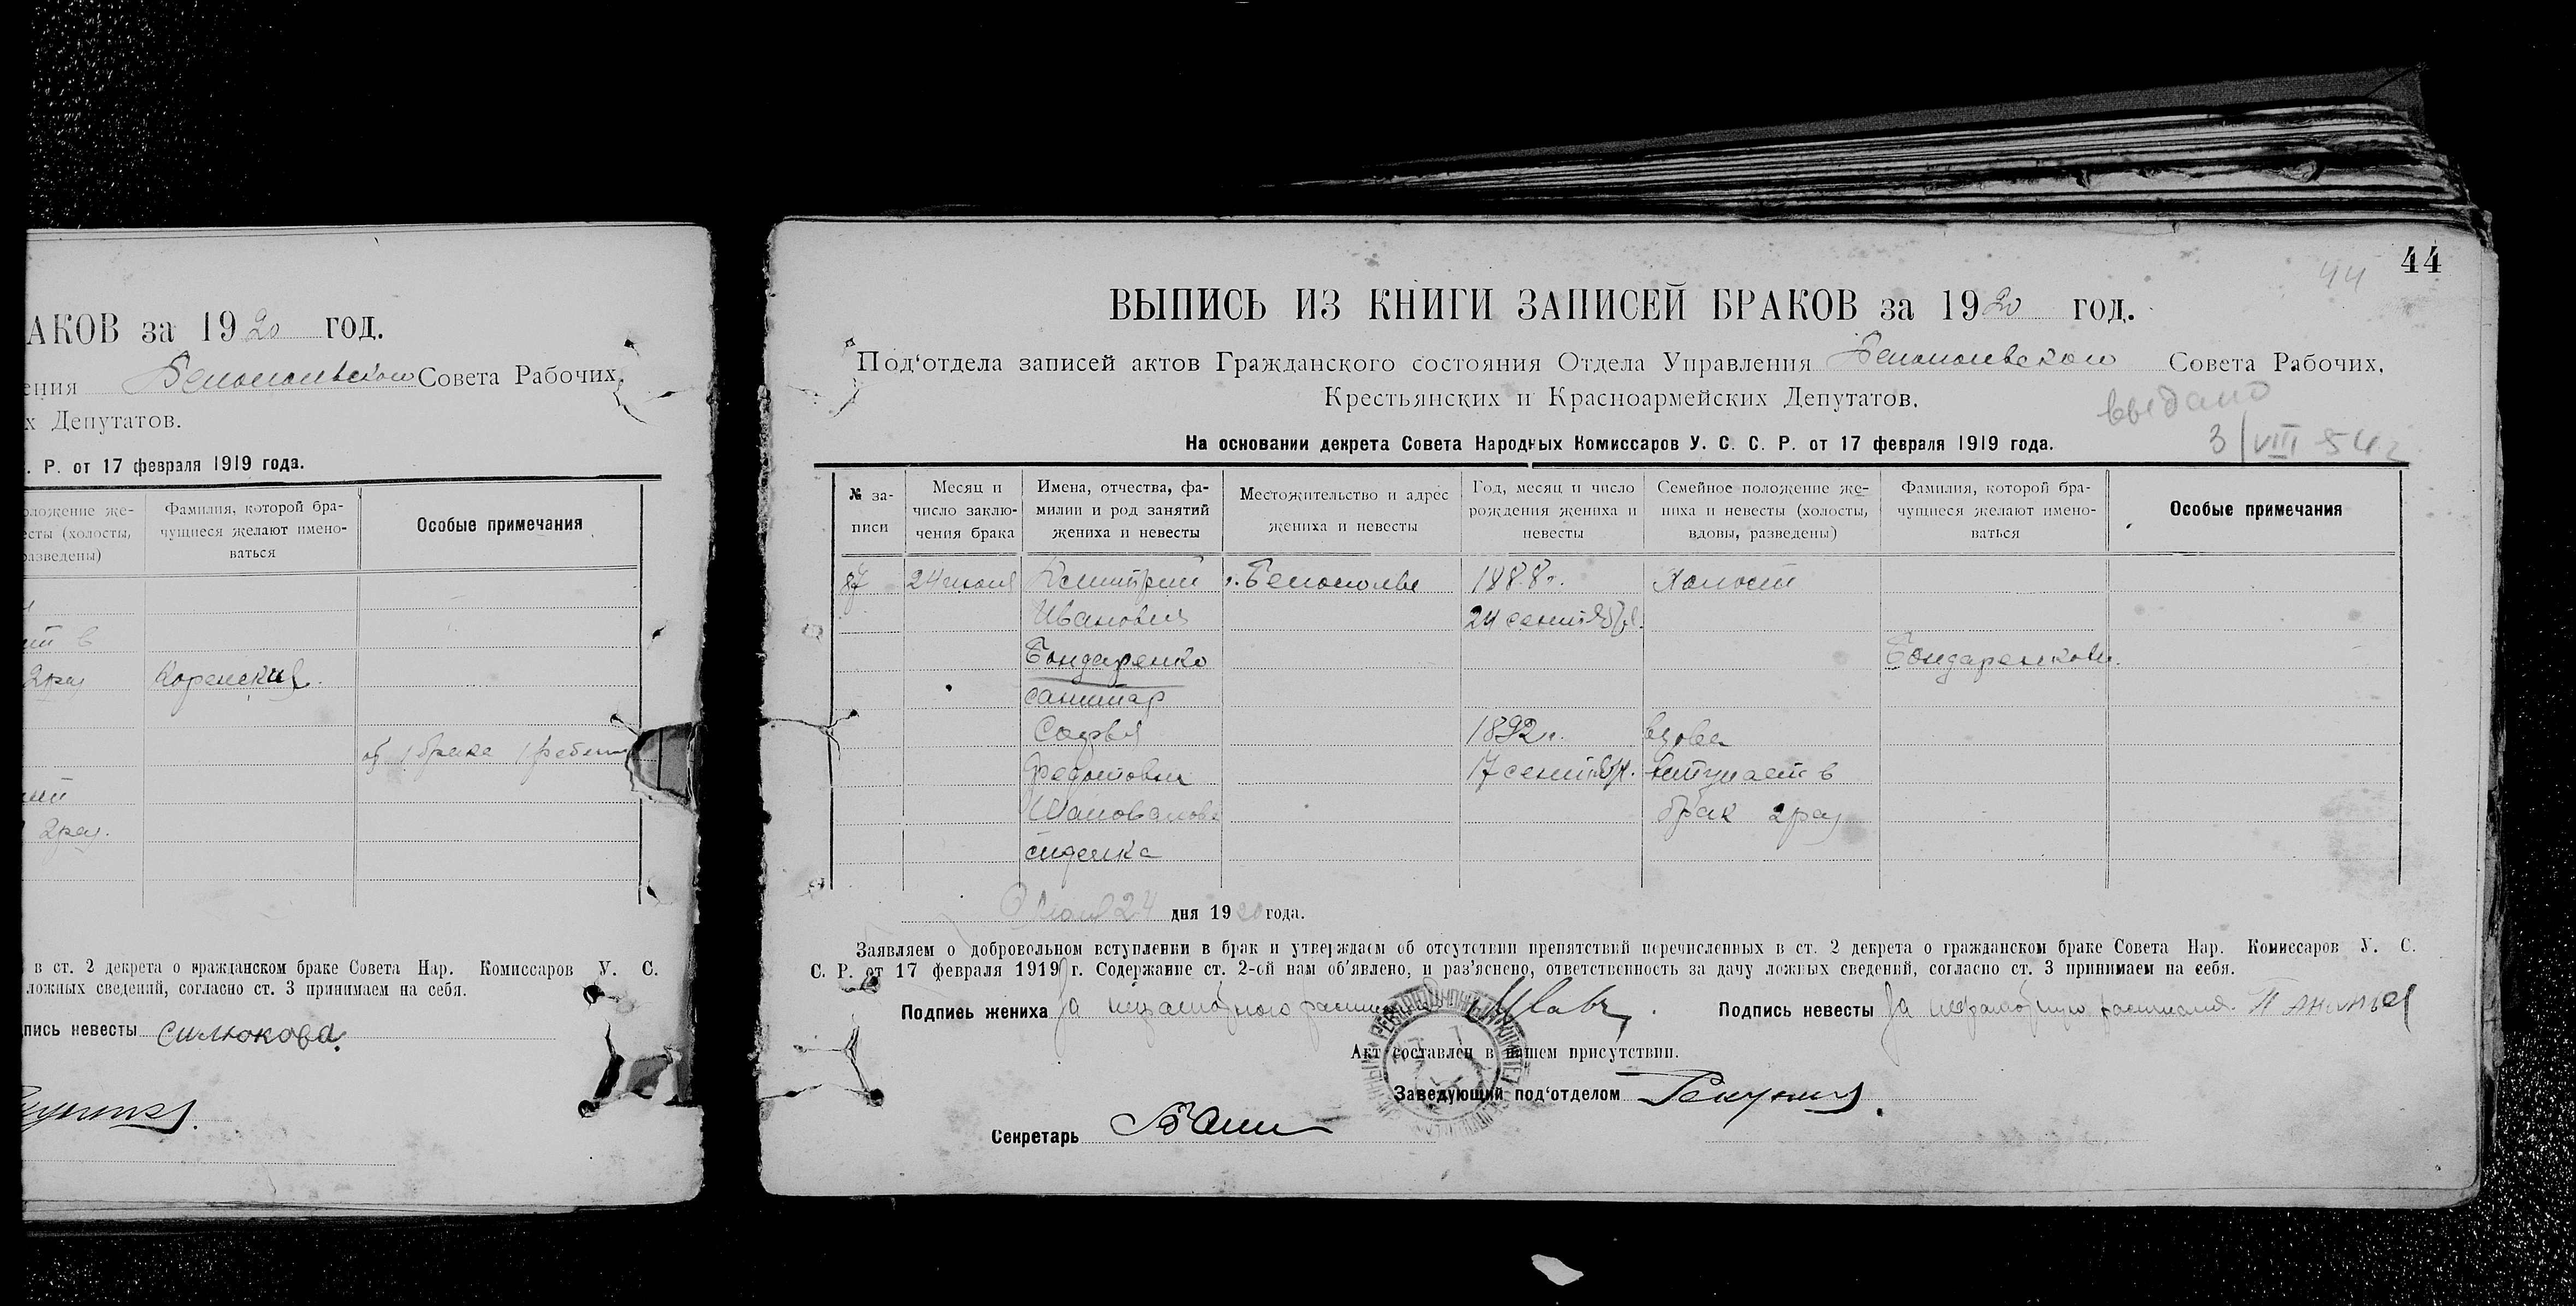 АКОВ за 1920 год.
ения Белопольского Совета Рабочих,
х Депутатов.
. Р. от 17 февраля 1919 года.
оложение же-
есты (холосты,
разведены)
Фамилия, которой бра-
чущиеся желают имено-
ваться
Особые примечания
в
2 раз Коренский.
1 брака 1
2 раз.
в ст. 2 декрета о гражданском браке Совета Нар. Комиссаров У. С.
ложных сведений, согласно ст. 3 принимаем на себя.
пись невесты Силюкова.
44
44
ВЫПИСЬ ИЗ КНИГИ ЗАПИСЕЙ БРАКОВ за 1920 год.
Под'отдела записей актов Гражданского состояния Отдела Управления Белопольского Совета Рабочих,
Крестьянских и Красноармейских Депутатов.
выдано
3/VIII 54 г
На основании декрета Совета Народных Комиссаров У. С. С. Р. от 17 февраля 1919 года.
№ за-
писи
Месяц и
число заклю-
чения брака
Имена, отчества, фа-
милии и род занятий
жениха и невесты
Местожительство и адрес
жениха и невесты
Год, месяц и число
рождения жениха и
невесты
Семейное положение же-
ниха и невесты (холосты,
вдовы, разведены)
Фамилия, которой бра-
чущиеся желают имено-
ваться
Особые примечания
87 24 июля Димитрий г. Белополье 1888 г. Холост
Иванович 24 сентября.
Бондаренко Бондаренковы.
санитар
Софья 1892 г. вдова
Федотовна 17 сентября. вступает в
Шаповалова брак 2 раз
сиделка
Июля 24 дня 1920 года.
Заявляем о добровольном вступлении в брак и утверждаем об отсутствии препятствий перечисленных в ст. 2 декрета о гражданском браке Совета Нар. Комиссаров У. С.
С. Р. от 17 февраля 1919 г. Содержание ст. 2-ой нам об'явлено, и раз'яснено, ответственность за дачу ложных сведений, согласно ст. 3 принимаем на себя.
Подпись жениха За неграмотного
Подпись невесты За неграмотную
Акт составлен в нашем присутствии.
Заведующий под'отделом
Секретарь